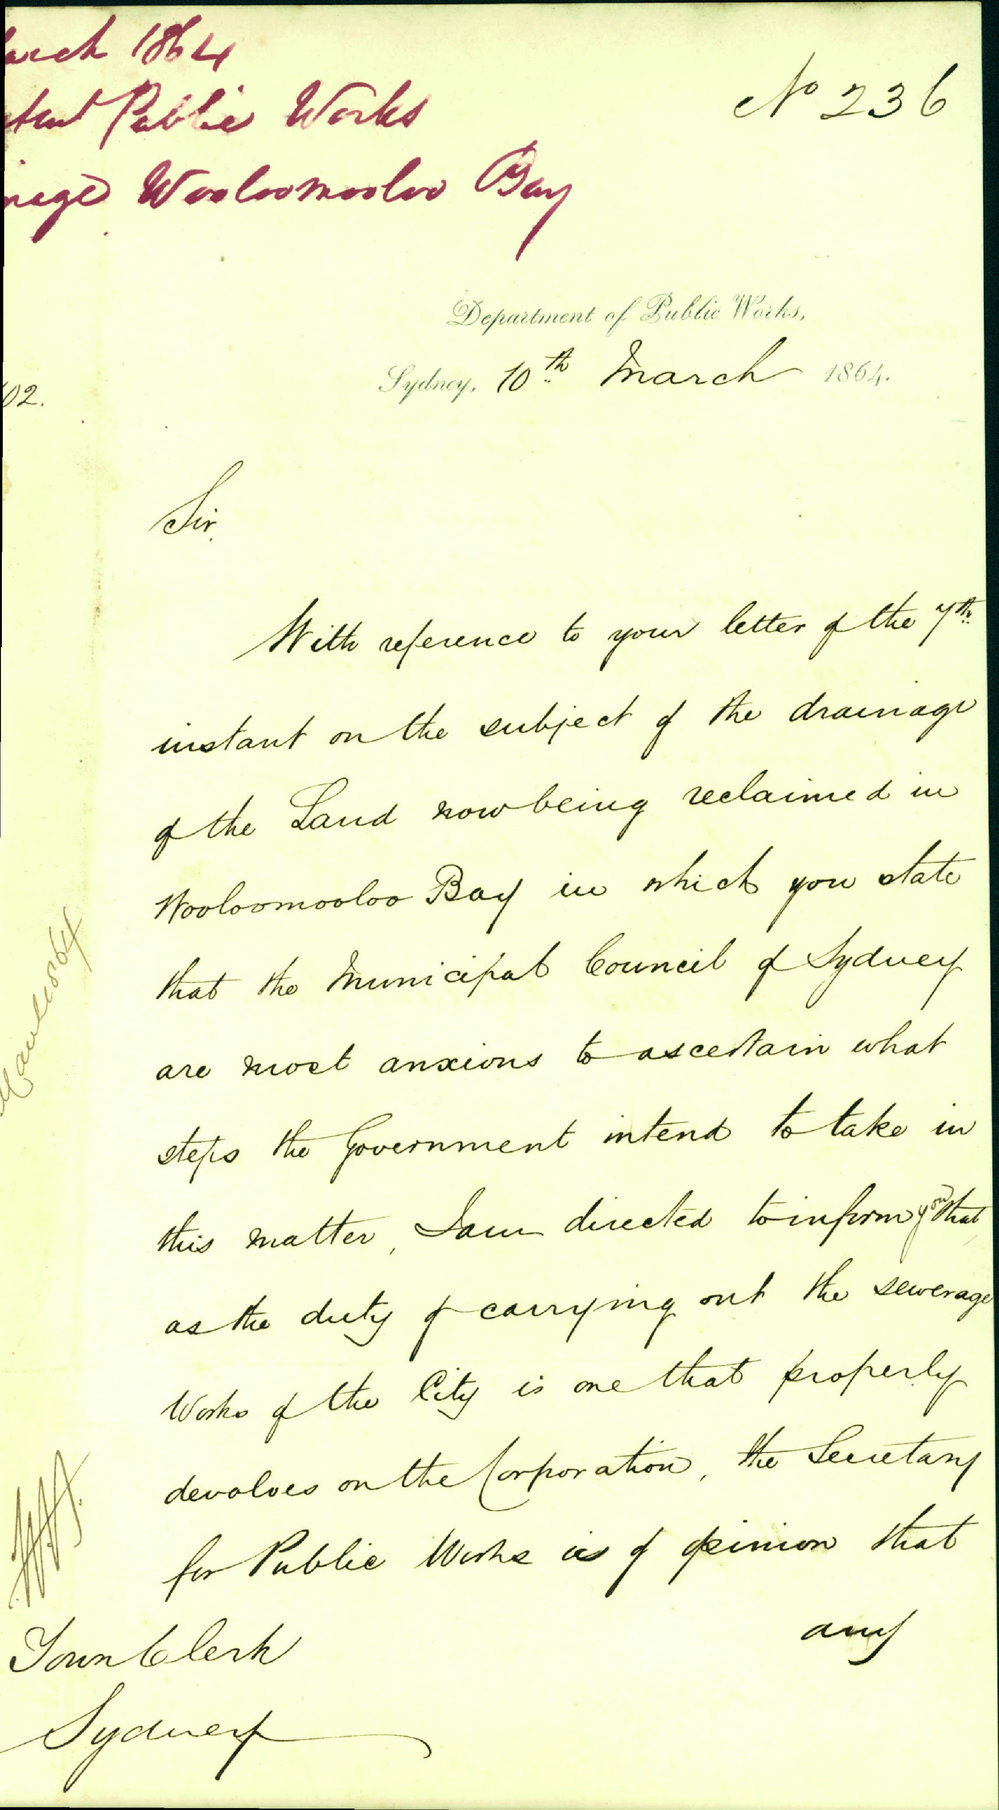 arch 1864
Public Works
nage Wooloomooloo Bay
No 236
Department of Public Works,
Sydney, 10th March 1864.
02.
Sir,
With reference to your letter of the 7th
instant on the subject of the drainage
of the Land now being reclaimed in
Wooloomooloo Bay in which you state
that the Municipal Council of Sydney
are most anxious to ascertain what
steps the Government intend to take in
this matter, I am directed to inform you that,
as the duty of carrying out the sewerage
Works of the City is one that properly
devolves on the Corporation, the Secretary
for Public Works is of opinion that
any
Town Clerk
Sydney